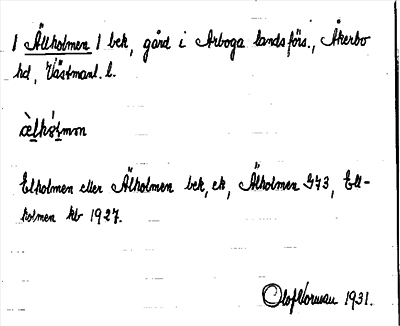 1 Ällholmen 1 bek, gård i Arboga landsförs., Åkerbo
hd, Västmanl. l.
Elholmen eller Älholmen bek, ek, Älholmen G73, Ell-
holmen kb 1927.
Olof Norman 1931.